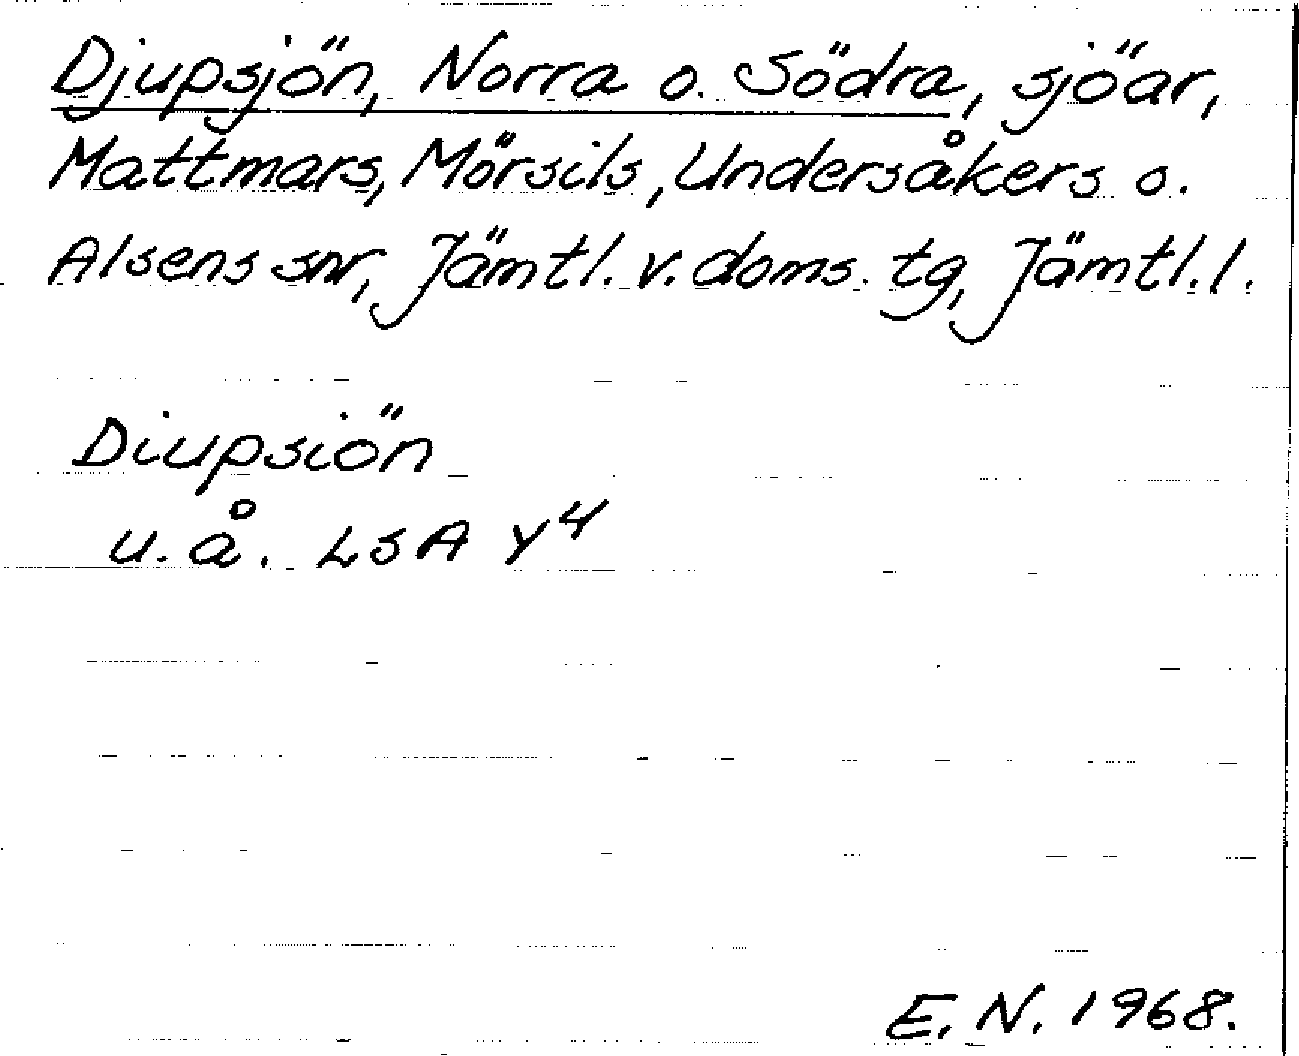 Djupsjön, Norra o. Södra, sjöar,
Mattmars, Mörsils, Undersåkers o.
Alsens snr, Jämtl. v. doms. tg, Jämtl. l.
Diupsiön
u. å. LSA Y4
E. N. 1968.